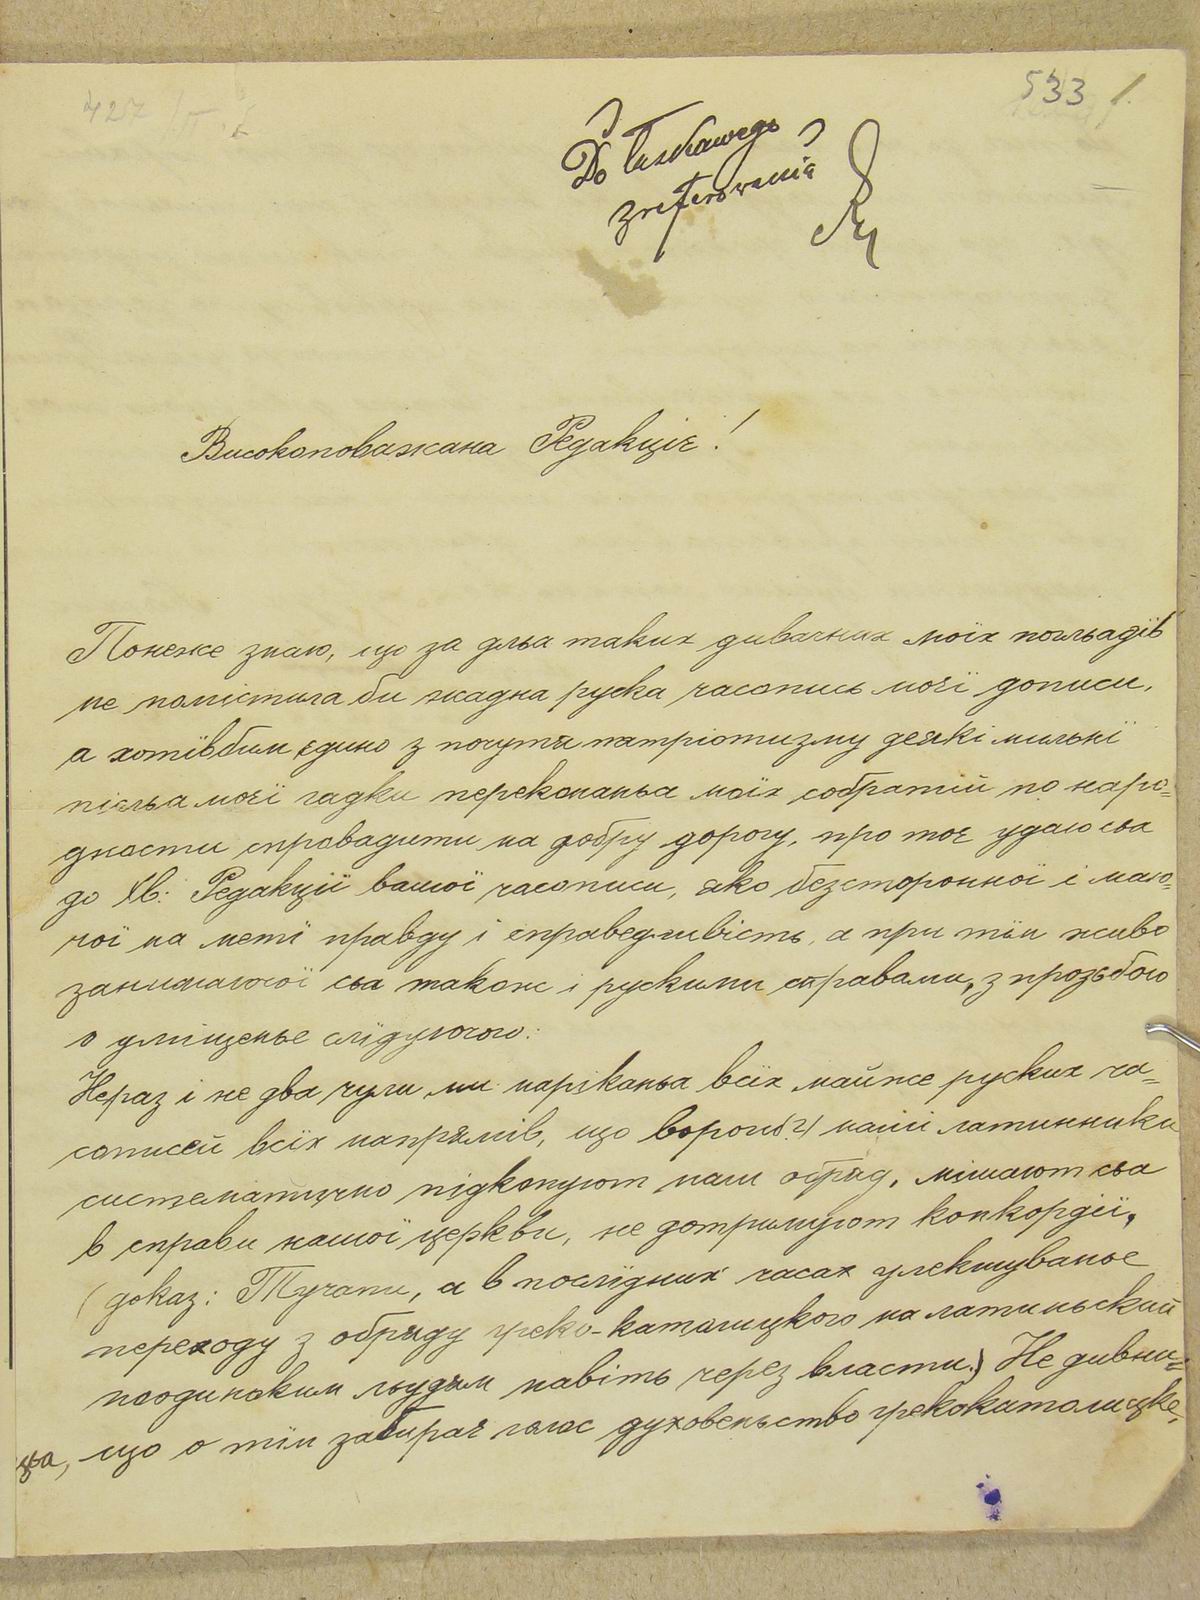 533 1.
427
До
зреферованія
Високоповажана Редакціє!
Понеже знаю, що за дльа таких дивачних моїх погльадів
не помістила би жадна руска часопись моєї дописи,
а хотівбим єдино з почутя патріотизму деякі мильні
післьа моєї гадки переконаньа моїх собратій по наро=
дности спровадити на добру дорогу, про тоє удаю сьа
до Хв: Редакції вашої часописи, яко безсторонної і маю=
чої на меті правду і справедливість, а при тім живо
занимаючої сьа також і рускими справами, з прозьбою
о уміщенье слїдуючого:
Нераз і не два чули ми наріканьа всїх майже руских ча=
сописей всїх напрямів, що вороги(?) наші латинники
систематично підкопуют наш обряд, мішают сьа
в справи нашої церкви, не дотримуют конкордії,
(доказ: Тучапи, а в послїдних часах улекшуванье
переходу з обряду греко-католицкого на латиньский
поодиноким льудям навіть через власти.) Не дивни=
ца, що о тім забирає голос духовеньство грекокатолицке,